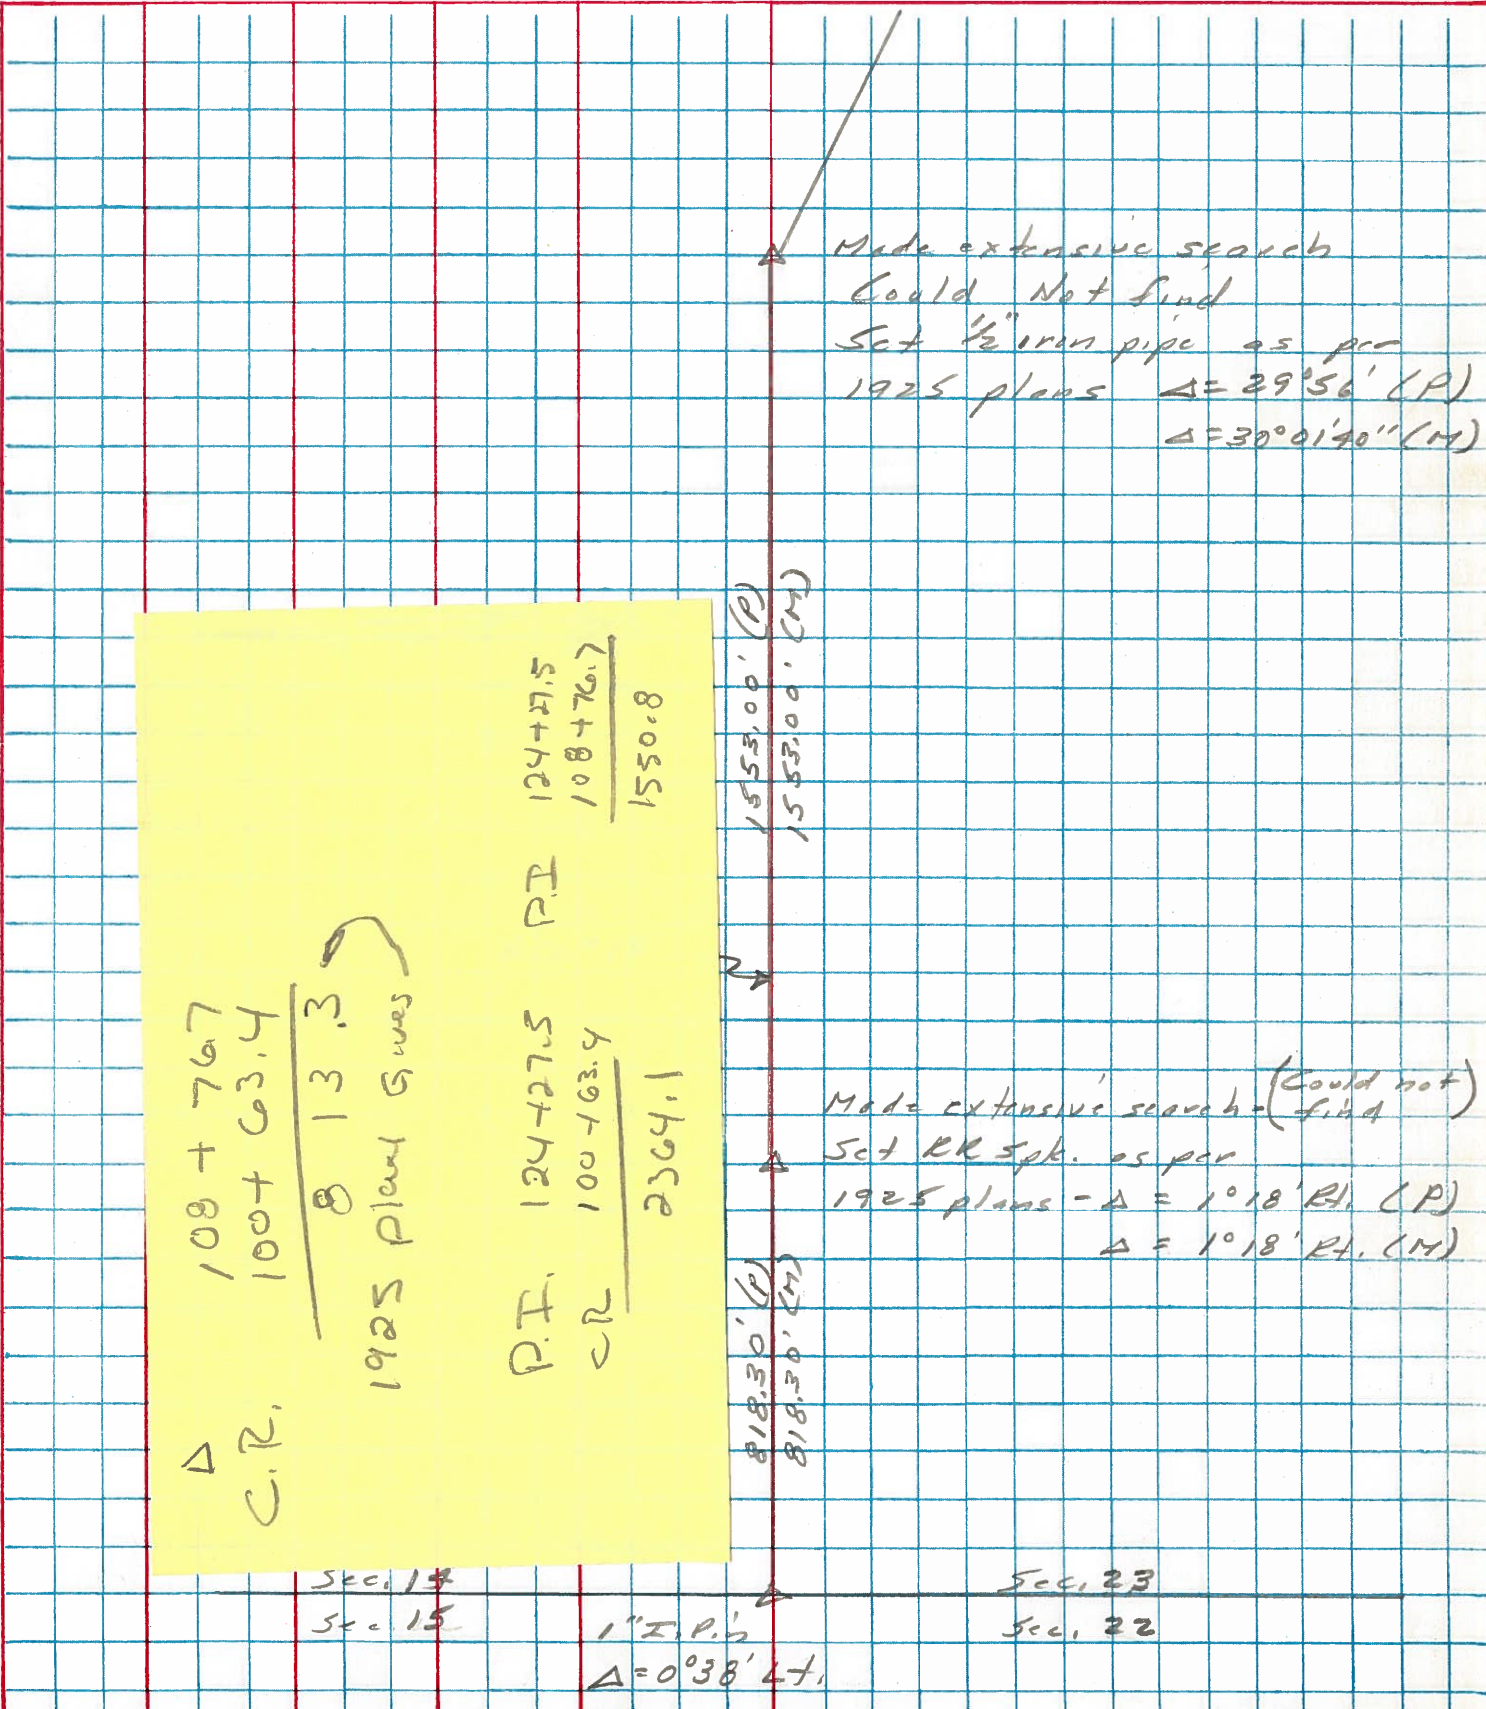 Made extensive search
Could Not find
Set 1/2" iron pipe as per
1925 plans Δ= 29°56' (P)
Δ=30°01'40" (M)
1553.00' (P)
1553.00' (M)
Made extensive search - (Could not find)
Set RR Spk. as per
1925 plans - Δ = 1°18' Rt. (P)
Δ = 1°18' Rt. (M)
818.30' (P)
818.30' (M)
Δ 108 + 76.7
C.R. 100 + 63.4
8 13.3
1925 plan Gives
P.I. 124+27.5
CR 100+63.4
2364.1
P.I 124+27.5
108+76.7
1550.8
Sec. 14
Sec. 15
Sec. 23
Sec. 22
1" I. Pin
Δ=0°38' Lt.